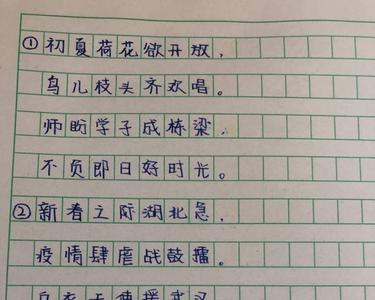 ①初夏荷花欲开放，
鸟儿枝头齐欢唱。
师盼学子成栋梁，
不负即日好时光。
②新春立际湖北急，
疫情肆虐战鼓擂。